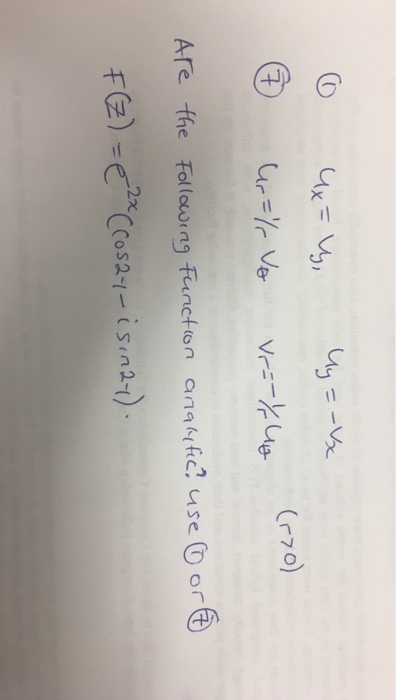 ① uₓ = v_y, u_y = -vₓ
⑦ u_r = 1/r v_θ v_r = -1/r u_θ (r>0)
Are the Following Function analytic? use ① or ⑦
F(Z) = e^-2x (cos2y - i sin2y).